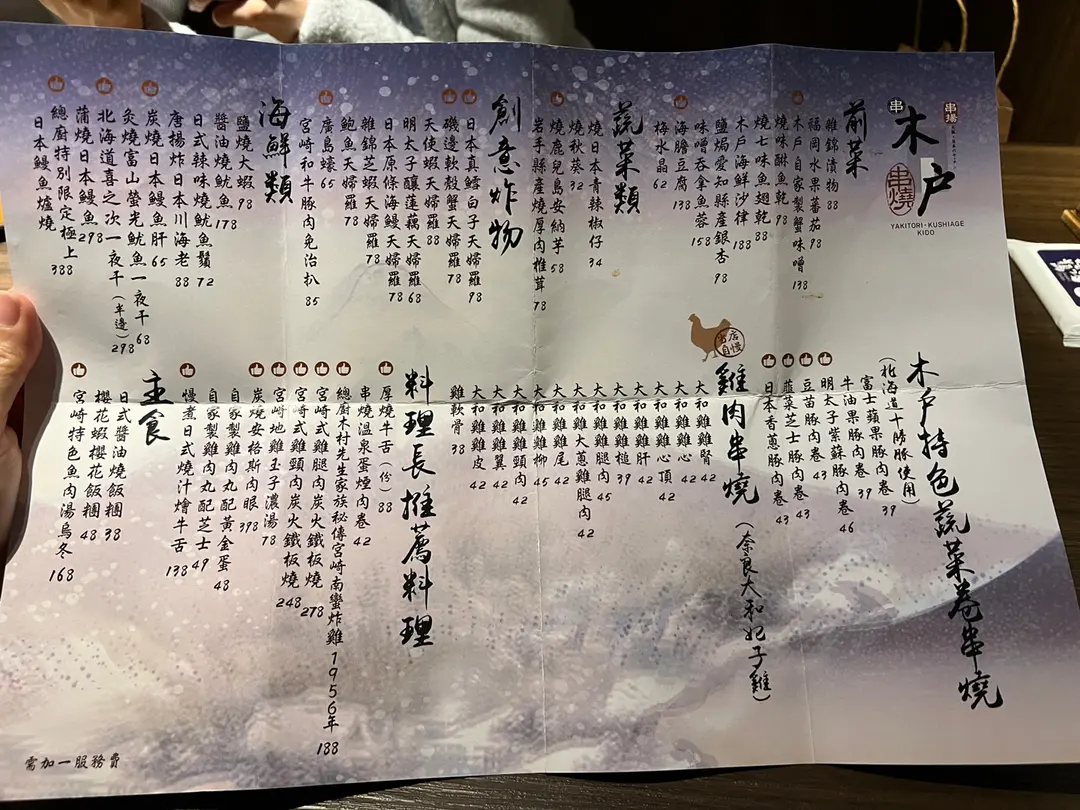 串揚
串
木戶
串燒
YAKITORI-KUSHIAGE
KIDO
前菜
雜錦漬物 88
福岡水果蕃茄 98
木戶自家製蟹味噌 138
燒味醂魚乾 98
燒七味魚翅乾 88
木戶海鮮沙律 188
鹽焗愛知縣產銀杏 98
味噌吞拿魚蓉 158
海膽豆腐 138
梅水晶 62
蔬菜類
燒日本青辣椒仔 34
燒秋葵 32
燒鹿兒島安納芋 58
岩手縣產燒厚肉椎茸 78
創意炸物
日本真鱈白子天婦羅 98
磯邊軟殼蟹天婦羅 78
天使蝦天婦羅 88
明太子釀蓮藕天婦羅 68
日本原條海鰻天婦羅 78
雜錦芝蝦天婦羅 78
鮑魚天婦羅 78
廣島蠔 65
宮崎和牛豚肉免治扒 85
海鮮類
鹽燒大蝦 98
醬油燒魷魚 178
日式辣味燒魷魚鬚 72
唐揚炸日本川海老 88
炭燒日本鰻魚肝 65
炙燒富山螢光魷魚一夜干 68
北海道喜之次一夜干(半邊) 298
蒲燒日本鰻魚 298
總廚特別限定極上
日本鰻魚爐燒 388
木戶特色蔬菜卷串燒
(北海道十勝豚使用)
富士蘋果豚肉卷 39
牛油果豚肉卷 39
明太子紫蘇豚肉卷 46
豆苗豚肉卷 43
韮菜芝士豚肉卷 43
日本香蔥豚肉卷 43
當店自慢
雞肉串燒(奈良大和妃子雞)
大和雞雞腎 42
大和雞雞心 42
大和雞雞心頂 42
大和雞雞肝 42
大和雞雞槌 39
大和雞雞腿肉 45
大和雞大蔥雞腿肉 42
大和雞雞尾 42
大和雞雞柳 45
大和雞雞頸肉 42
大和雞雞翼 42
大和雞雞皮 42
雞軟骨 38
料理長推薦料理
厚燒牛舌(份) 88
串燒溫泉蛋煙肉卷 42
總廚木村先生家族秘傳宮崎南蠻炸雞1956年 188
宮崎式雞腿肉炭火鐵板燒 278
宮崎式雞頸肉炭火鐵板燒 248
宮崎地雞玉子濃湯 78
炭燒安格斯肉眼 398
自家製雞肉丸配黃金蛋 48
自家製雞肉丸配芝士 49
慢煮日式燒汁燴牛舌 138
主食
日式醬油燒飯糰 38
櫻花蝦櫻花飯糰 48
宮崎特色魚肉湯烏冬 168
需加一服務費